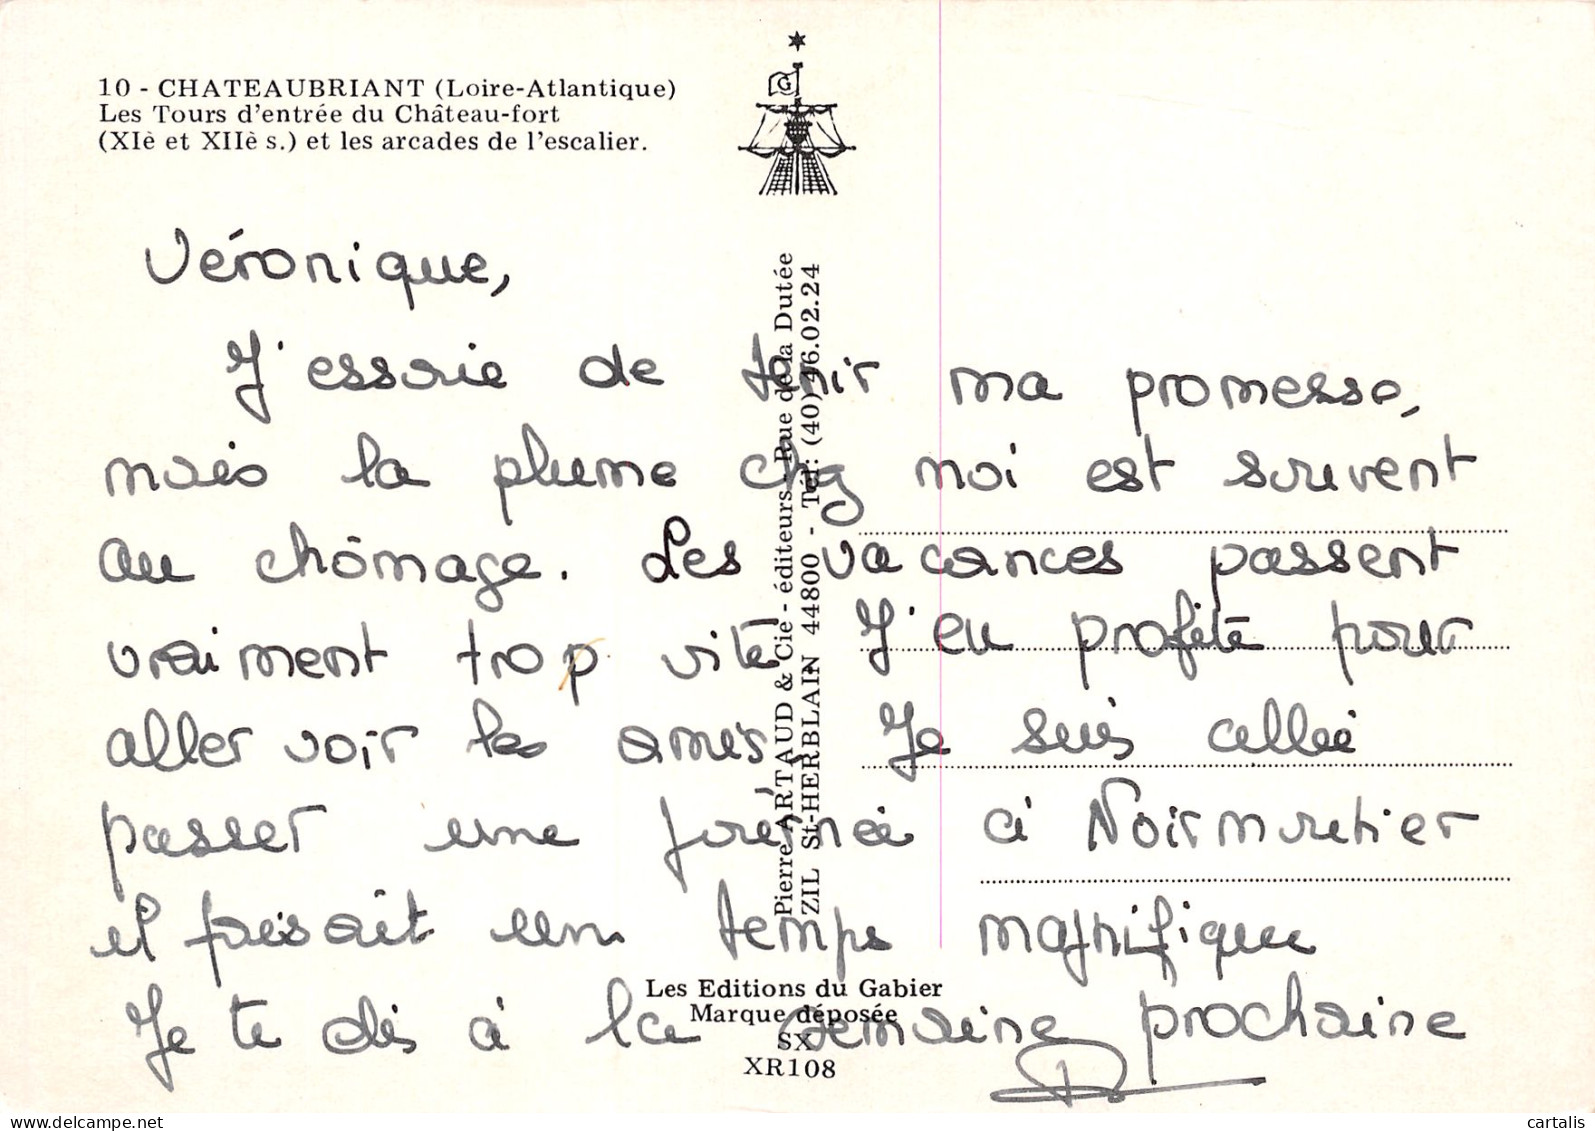 10 - CHATEAUBRIANT (Loire-Atlantique)
Les Tours d'entrée du Château-fort
(XIè et XIIè s.) et les arcades de l'escalier.
G
Véronique,
J'essaie de tenir ma promesse,
mais la plume chez moi est souvent
au chômage. Les vacances passent
vraiment trop vite. J'en profite pour
aller voir les amis. Je suis allée
passer une journée à Noirmoutier
il faisait un temps magnifique
Je te dis à la semaine prochaine
Pierre ARTAUD & Cie - éditeurs - Rue de la Dutée
ZIL St-HERBLAIN 44800 - Tél : (40) 46.02.24
Les Editions du Gabier
Marque déposée
SX
XR108
cartalis
delcampe.net